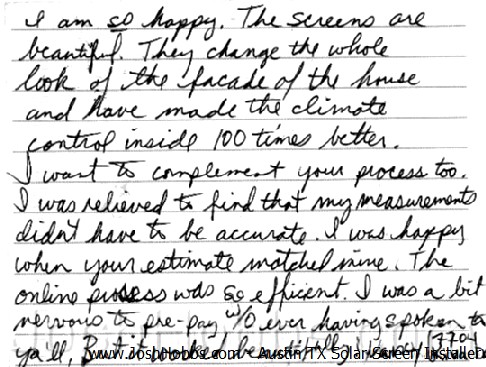 I am so happy. The screens are
beautiful. They change the whole
look of the facade of the house
and have made the climate
control inside 100 times better.
I want to complement your process too.
I was relieved to find that my measurements
didn't have to be accurate. I was happy
when your estimate matched mine. The
online process was so efficent. I was a bit
nervous to pre-pay w/o ever having spoken to
ya'll, But it worked beautifully
www.JoshHobbs.com - Austin, TX Solar Screen Installer